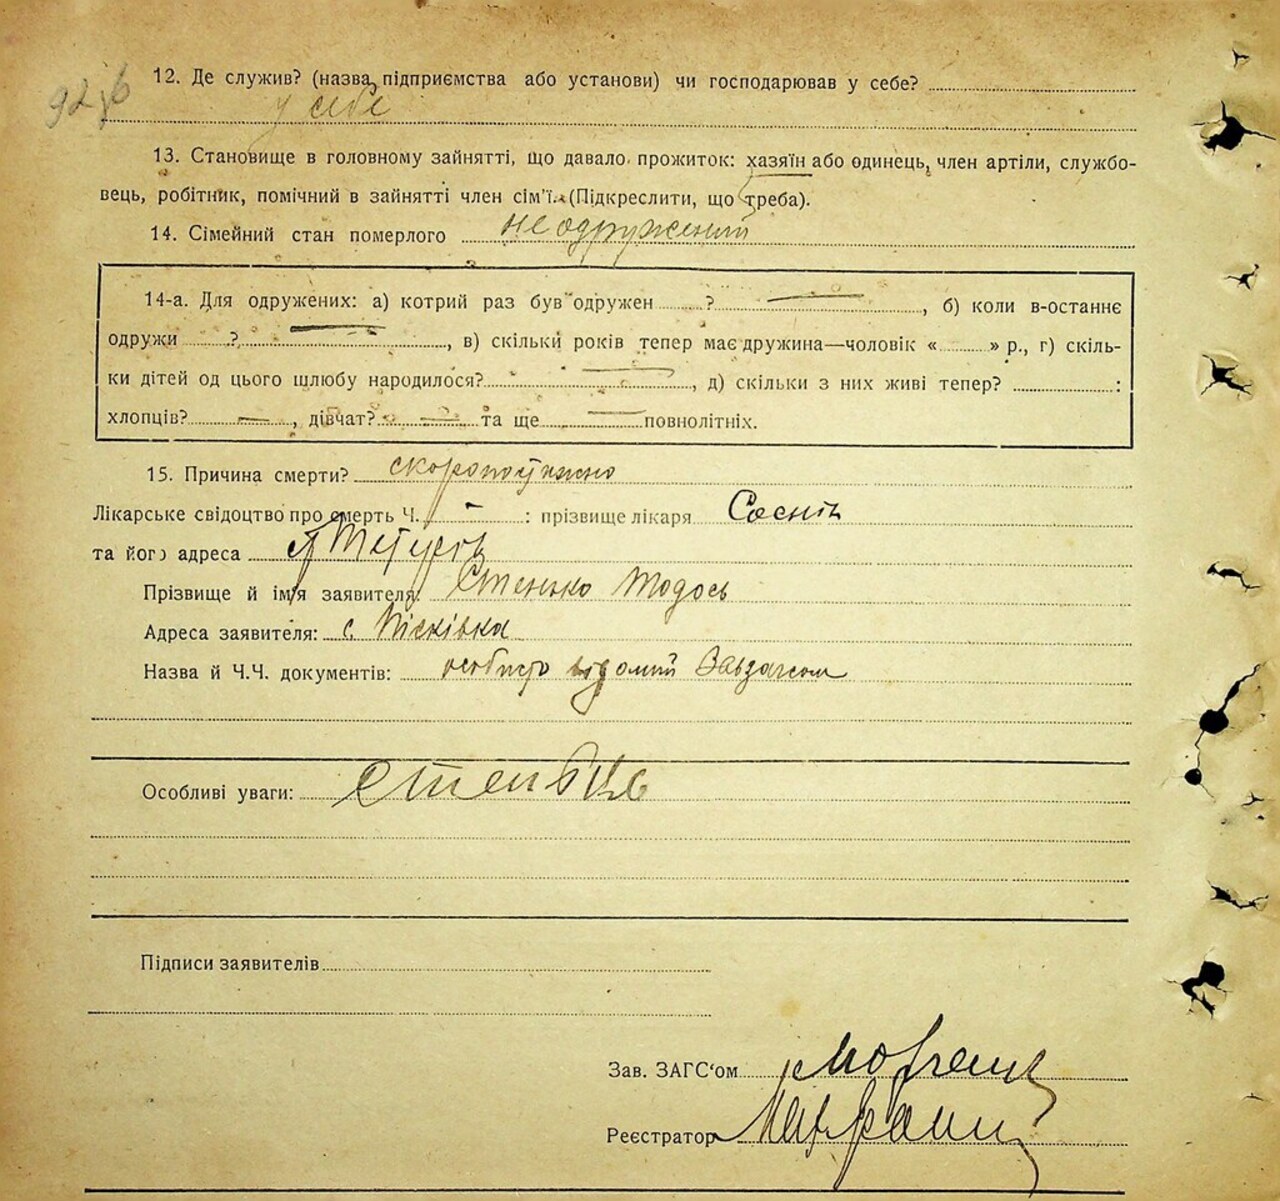 12. Де служив? (назва підприємства або установи) чи господарював у себе?
у себе
13. Становище в головному зайнятті, що давало прожиток: хазяїн або одинець, член артіли, службо-
вець, робітник, помічний в зайнятті член сім'ї. (Підкреслити, що треба).
14. Сімейний стан померлого неодружений
14-а. Для одружених: а) котрий раз був одружен ? — , б) коли в-останнє
одружи ? — , в) скільки років тепер має дружина—чоловік « » р., г) скіль-
ки дітей од цього шлюбу народилося? — , д) скільки з них живі тепер? :
хлопців? — , дівчат? — та ще — повнолітніх.
15. Причина смерти? скоропостижно
Лікарське свідоцтво про смерть Ч. - : прізвище лікаря
та його адреса
Прізвище й ім'я заявителя: Стенько Тодось
Адреса заявителя: с. Пісківка
Назва й Ч.Ч. документів: особисто відомий Завзагсом
Особливі уваги:
Підписи заявителів
Зав. ЗАГС'ом
Реєстратор